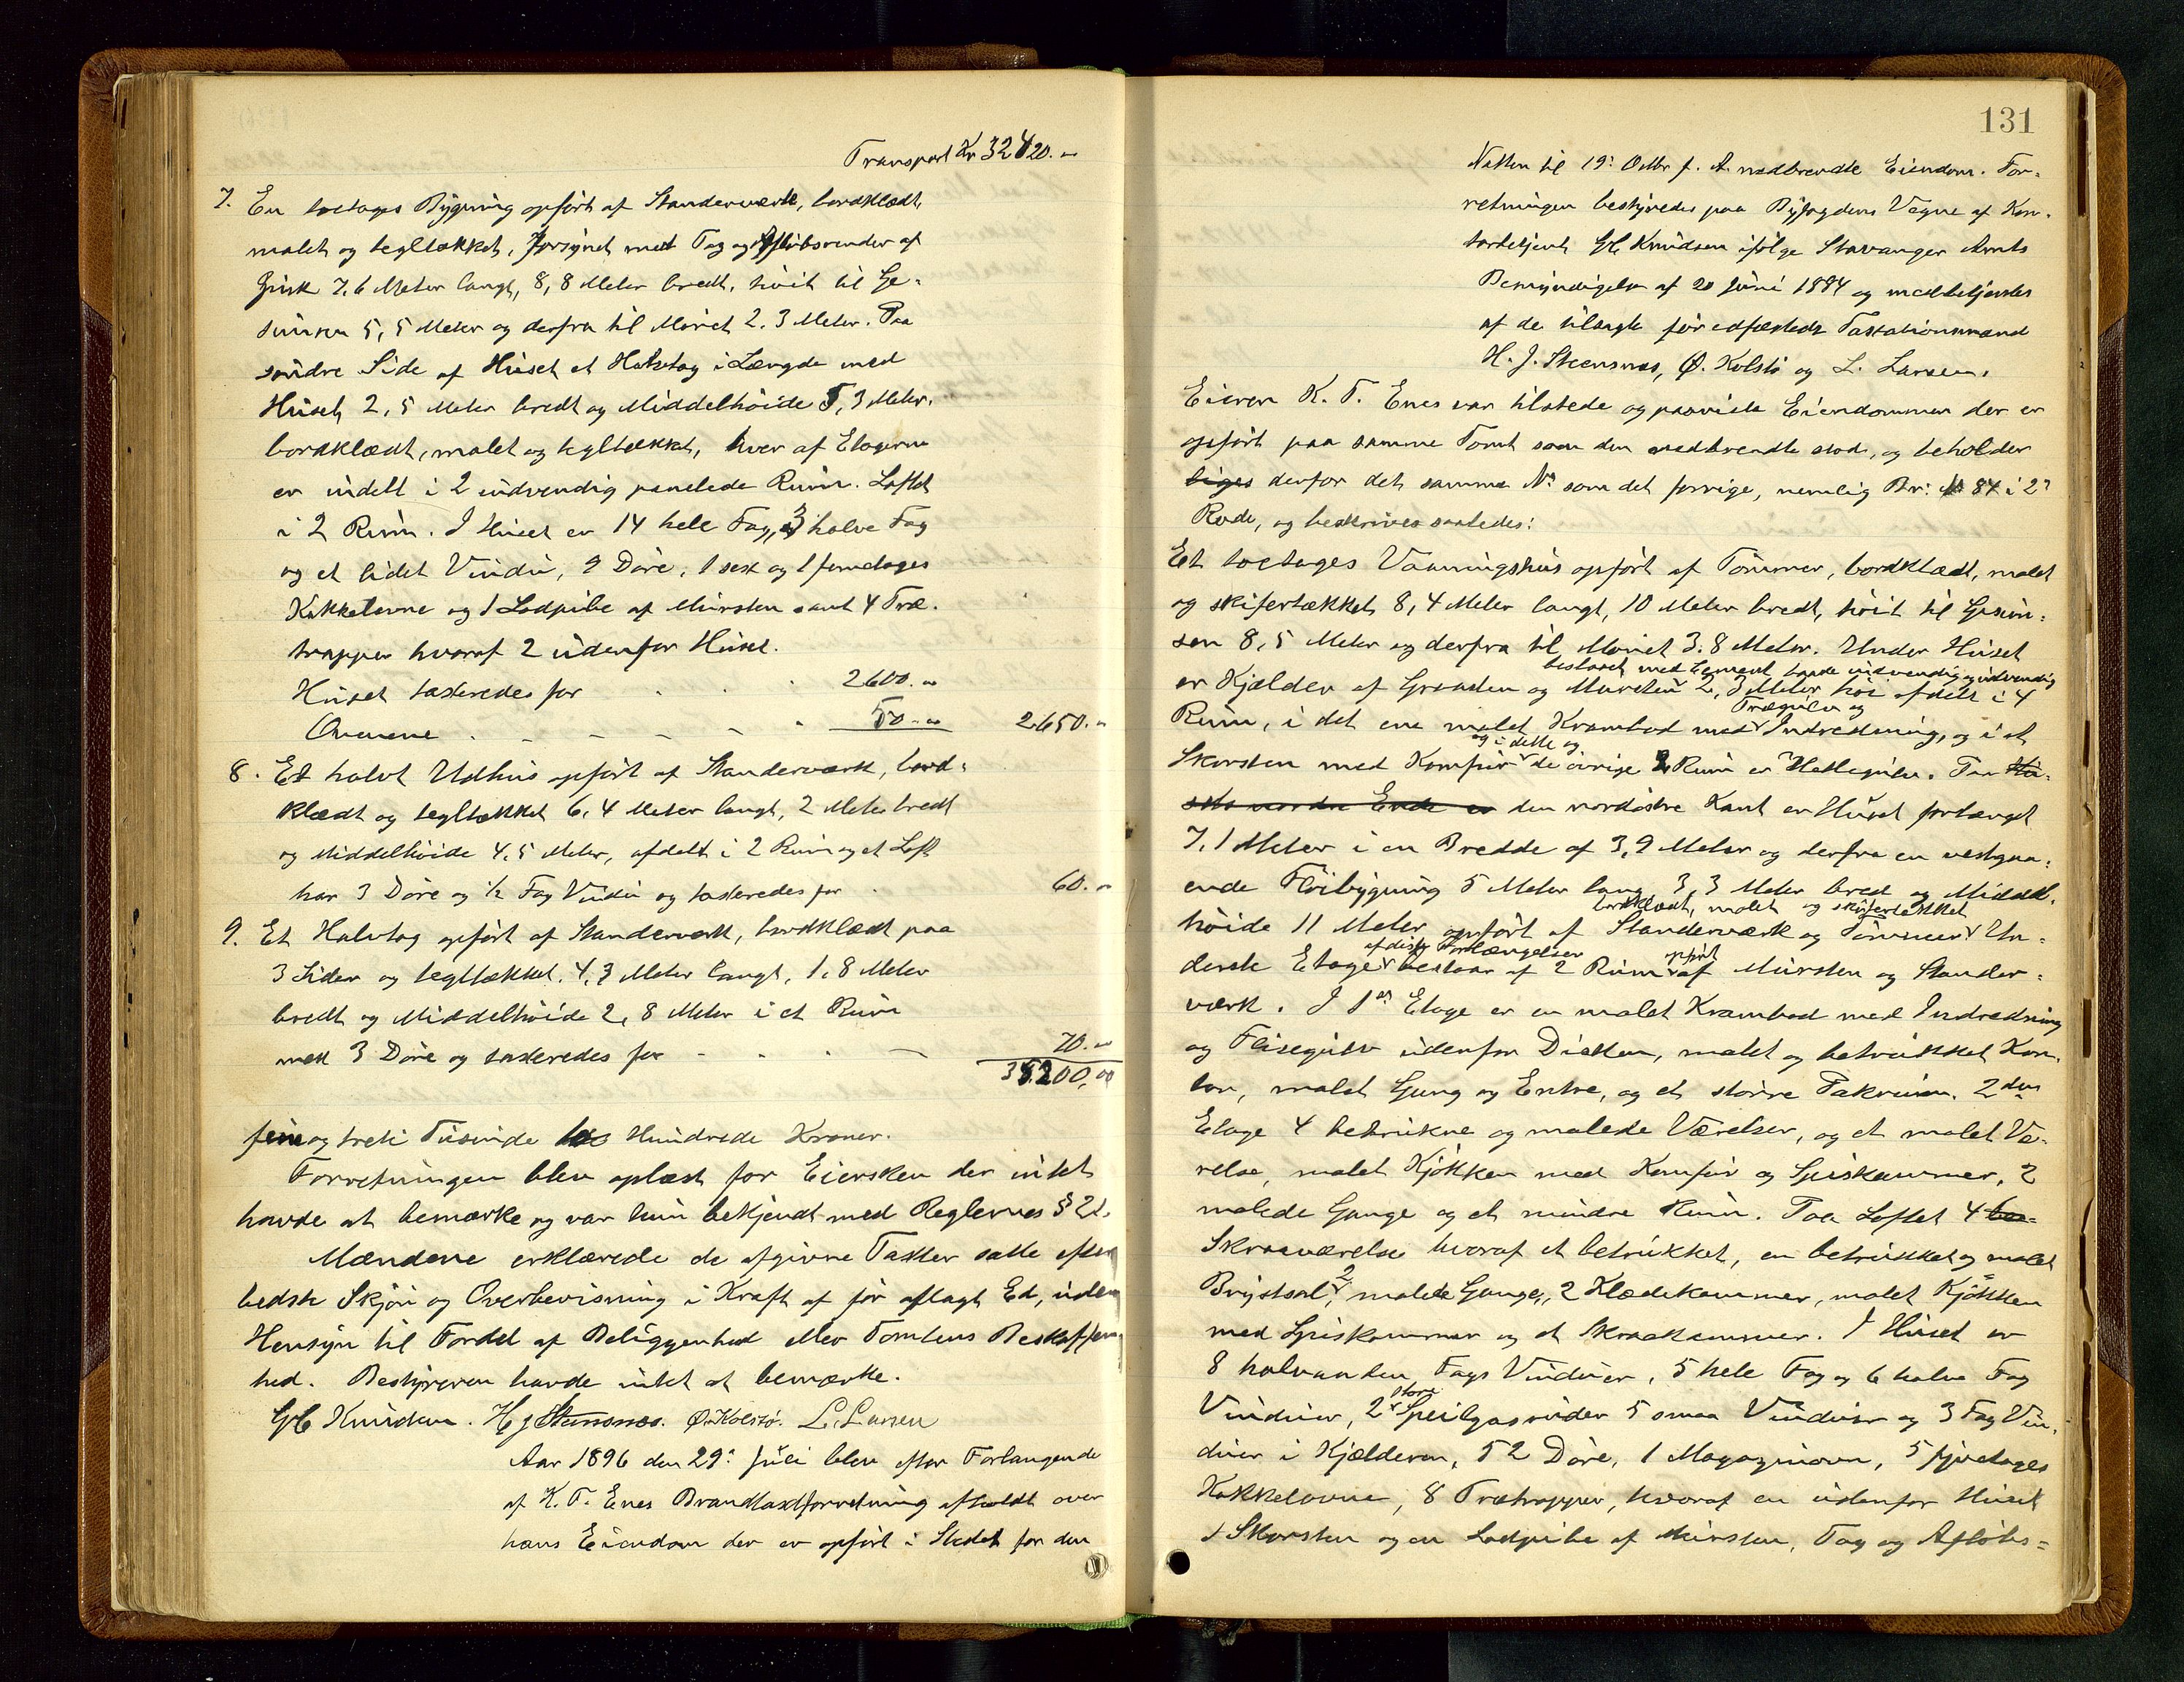 Transport Kr 32420.„
7. En toetages Bygning opført af Standerværk, bordklædt,
malet og tegltækket, forsynet med Tag og Afløbsrender af
Zink 7,6 Meter langt, 8,8 Meter bredt, høit til Ge-
simsen 5,5 Meter og derfra til Mønet 2.3 Meter. Paa
søndre Side af Huset et Halvtag i Længde med
Huset, 2,5 Meter bredt og Middelhøide 5,3 Meter.
bordklædt, malet og tegltækket, hver af Etagerne
er indelt i 2 indvendig panelede Rum. Loftet
i 2 Rum. I Huset er 14 hele Fag, 3 halve Fag
og et lidet Vindu, 9 Døre, 1 sex og 1 femetages
Kakkelovne og 1 Lodpibe af Mursten samt 4 Træ-
trapper hvoraf 2 udenfor Huset.
Huset taxeredes for 2600.„
Ovnene 50.„ 2650.„
8. Et halvt Udhus opført af Standerværk, bord-
klædt og tegltækket 6,4 Meter langt, 2 Meter bredt
og Middelhøide 4,5 Meter, afdelt i 2 Rum og et Loft
har 3 Døre og ½ Fag Vindu og taxeredes for 60.„
9. Et Halvtag opført af Standerværk, bordklædt paa
3 Sider og tegltækket. 4,3 Meter langt, 1,8 Meter
bredt og Middelhøide 2,8 Meter i et Rum
med 3 Døre og taxeredes for 70.„
35200,00
fem og treti Tusinde to Hundrede Kroner.
Forretningen blev oplæst for Eiersken der intet
havde at bemærke og var hun bekjendt med Reglernes § 21.
Mændene erklærede de afgivne Taxter satte efter
bedste Skjøn og Overbevisning i Kraft af før aflagt Ed, uden
Hensyn til Fordel af Beliggenhed eller Tomtens Beskaffen
hed. Bestyreren havde intet at bemærke.
Knudsen. H J Steensnæs. Ø. Kolstø. L. Larsen
Aar 1896 den 29: Juli blev efter Forlangende
af K. T. Enes Brandtaxtforretning afholdt over
hans Eiendom der er opført i Stedet for den
131
Natten til 19: Octbr f. A. nedbrendte Eiendom. For-
retningen bestyredes paa Byfogdens Vegne af Kon-
torbetjent Knudsen ifølge Stavanger Amts
Bemyndigelse af 20 Juni 1884 og medbetjentes
af de tilsagte før edfæstede Taxtationsmænd
H. J. Steensnæs, Ø. Kolstø og L. Larsen.
Eieren K. T. Enes var tilstede og paaviste Eiendommen der er
opført paa samme Tomt som den nedbrendte stod, og beholder
liges derfor det samme No som det forrige, nemlig Br: No 84 i 2:
Rode, og beskrives saaledes:
Et toetages Vaaningshus opført af Tømmer, bordklædt, malet
og skifertækket 8,4 Meter langt, 10 Meter bredt, høit til Gesim-
sen 8,5 Meter og derfra til Mønet 3.8 Meter. Under Huset
beslaaet med Cement baade indvendig og udvendig
er Kjelder af Graasten og Mursten 2,3 Meter høi afdelt i 4
Trægulv og
Rum, i det ene malet Krambod med Indredning, og i et
og i dette og
Skorsten med Komfur de øvrige 2 Rum er Hellegulv. Paa Hu-
sets nordre Ende er den nordøstre Kant er Huset forlænget
7,1 Meter i en Bredde af 3,9 Meter og derfra en vestgaa-
ende Fløibygning 5 Meter lang 3,3 Meter bred og Middel-
bordklædt, malet og skifertækket
høide 11 Meter opført af Standerværk og Tømmer Un-
af disse Forlængelser opført
derste Etage bestaar af 2 Rum af Mursten og Stander-
værk. I 1ste Etage er en malet Krambod med Indredning
og Flisegulv udenfor Disken, malet og betrukket Kon-
tor, malet Gang og Entre, og et større Pakrum. 2den
Etage 4 betrukne og malede Værelser, og et malet Væ-
relse, malet Kjøkken med Komfur og Spiskammer, 2
malede Gange og et mindre Rum. Paa Loftet 4 be-
Skraaværelse hvoraf et betrukket, en betrukket og malet
Brystsal, 2 malede Gange, 2 Klædekammer, malet Kjøkken
med Spiskammer og et Skraakammer. I Huset er
8 halvanden Fags Vinduer, 5 hele Fag og 6 halve Fag
store
Vinduer, 2 Speilglasruder 5 smaa Vinduer og 3 Fag Vin-
duer i Kjelderen, 52 Døre, 1 Magazinovn, 5 fjiretages
Kakkelovne, 8 Trætrapper, hvoraf en udenfor Huset
1 Skorsten og en Lodpibe af Mursten, Tag og Afløbs-